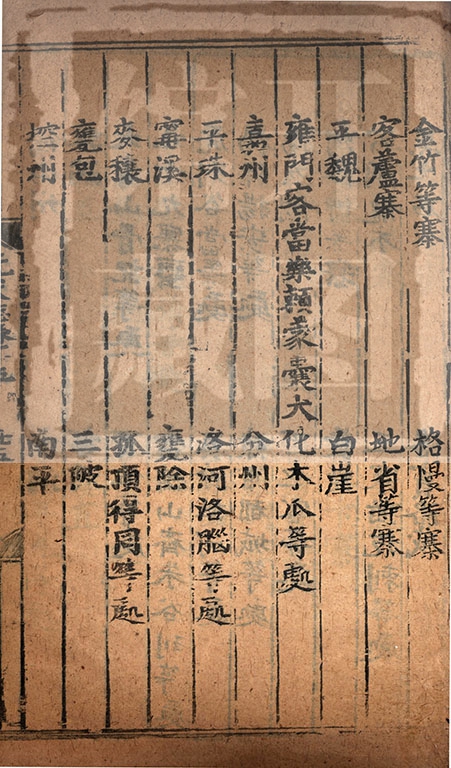 金竹等寨　格慢等寨
客蘆寨　地省等寨
平魏　白崖
雍門客當樂賴蒙囊大化木瓜等處
嘉州　分州
平珠　洛河洛腦等處
甯溪　甕除
麥穰　孤頂得同等處
甕包　三陂
控州　南平